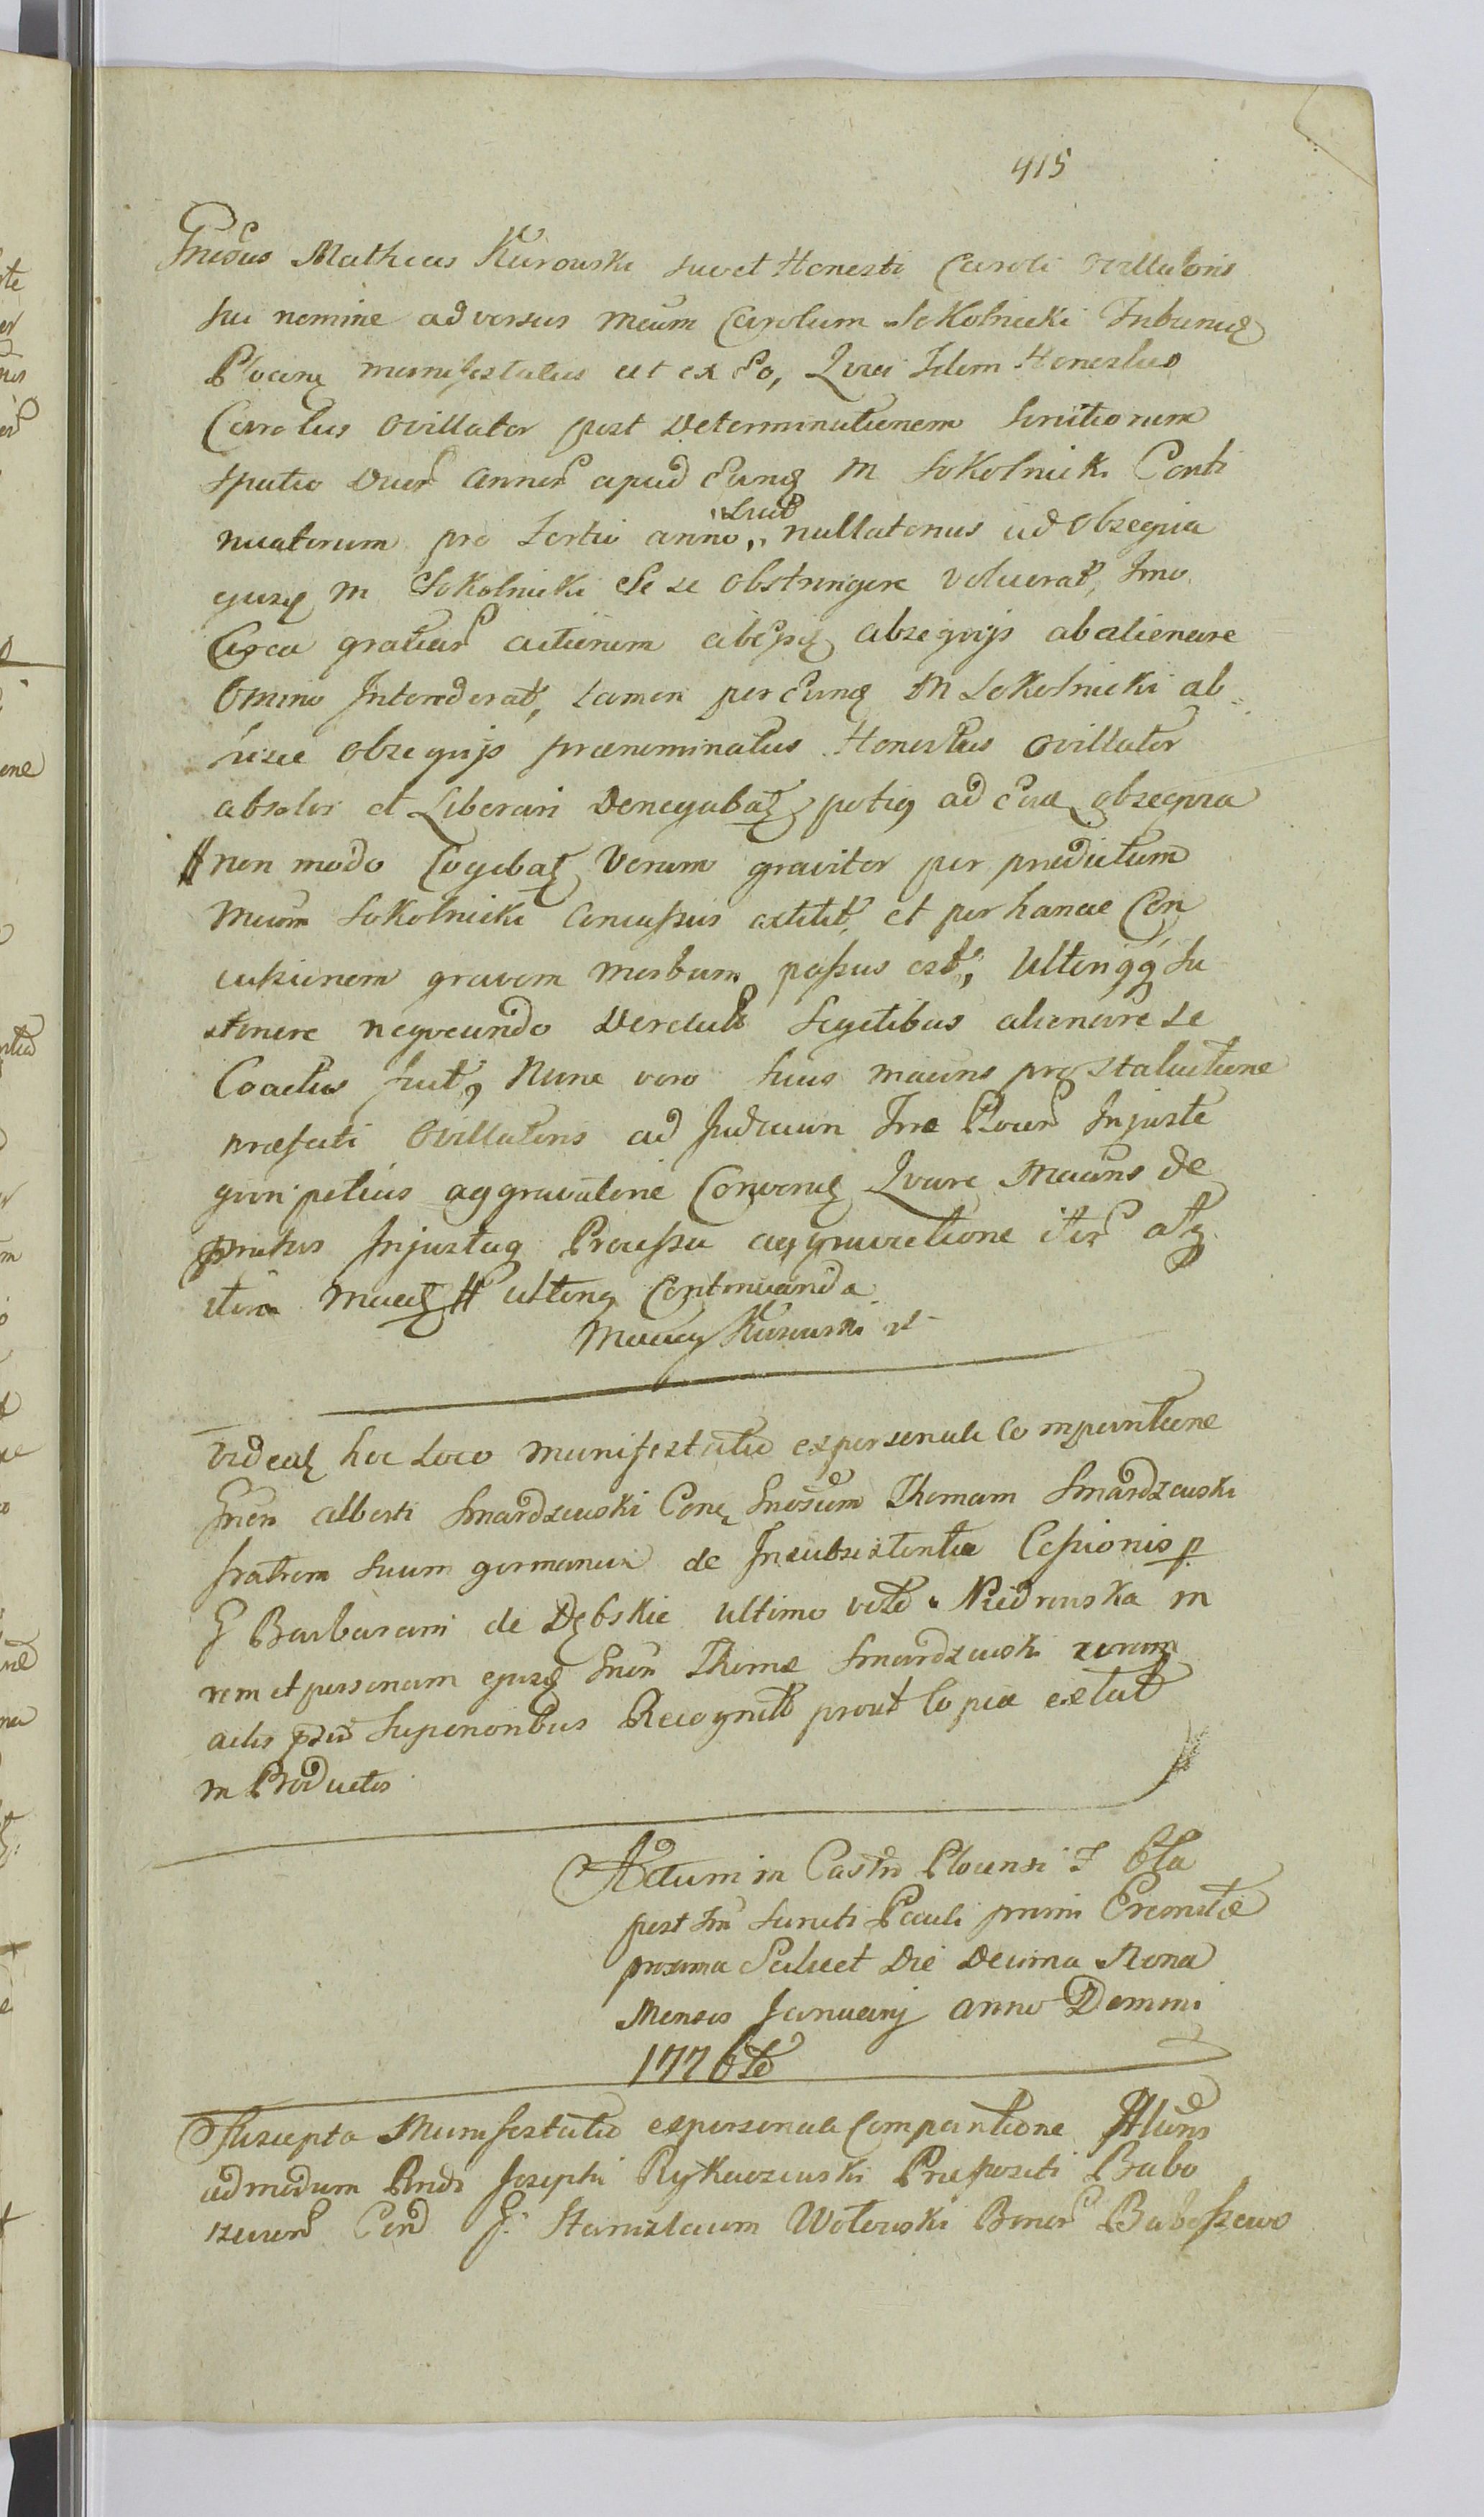 415
Gnrosus Mathias Kurowski suo et Honesti Caroli Ovillatoris
sui nomine adversus Mcum Carolum Sokolnicki Tribunū
Plocenę manifestatus est ex Eo, Qvia Idem Honestus
Carolus Ovillator post Determinationem Servitiorum
spatio Duor annor apud Eunḑ M Sokolnicki Conti
nuatorum pro tertio anno, suo nullatenus ad Obseqvia
ejusḑ M Sokolnicki Se se obstringere voluerat, Imo
Circa gratiar actionem ab obseqvijs abalienare
Omnino Intenderat, tamen per Eunḑ M Sokolnicki ab
obseqvijs praenominatus Honestus Ovillator
absolvi et Liberari Denegabat potiq ad obseqvia
non modo Cogebat Verum graviter per praedictum
Mcum Sokolnicki Concussus extitit, et per hancce Con
cussionem gravem morbum passus est, Ulteriqq Su
stinere neqveundo segetibus alienare se
Coactus fuit, Nunc vero suus Macns pro Statuitione
praefati Ovillatoris ad Judicium Trre Plocen Injuste
aggravatorie Convenit Qvare Macns de
Injustaq Processu aggravatione iter atq
iterū ulteriq Continuanda
Maciey Kurowski
Videat hoc Loco Manifestatio ex personali Comparitione
Gnen Alberti Smardzewski Conę Gnosum Thomam Smardzewski
fratrem suum germanum de Insubsistentia Cessionis p
G Barbaram de Dębskie ultimo voto Niedrowska in
rem et personam ejusḑ Gnen Thomæ Smardzewski coram
actis Superioribus Recognit prout Copia extat
in Productis
Actum in Castro Plocensi F 6ta
post fm Sancti Pauli primi Eremitæ
proxima Scilicet Die Decima Nona
Mensis Januarij anno Domini
1776to
Suscepta Manifestatio ex personali Comparitione Illuns
admodum Rndi Josephi Rykaczewski Praepositi Babo
szewen Con G. Stanislaum Wołowski Bonor Baboszewo